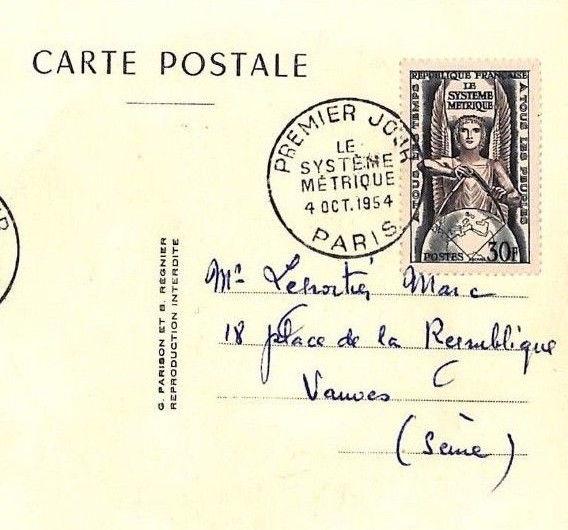 CARTE POSTALE
REPUBLIQUE FRANÇAISE
LE
SYSTÈME
MÉTRIQUE
A TOUS LES TEMPS
A TOUS LES PEUPLES
POSTES 30F
PREMIER JOUR
LE
SYSTÈME
MÉTRIQUE
4 OCT. 1954
PARIS
G. PARISON ET B. RÉGNIER
REPRODUCTION INTERDITE
Mr Marc
18 place de la République
Vanves
(Seine)